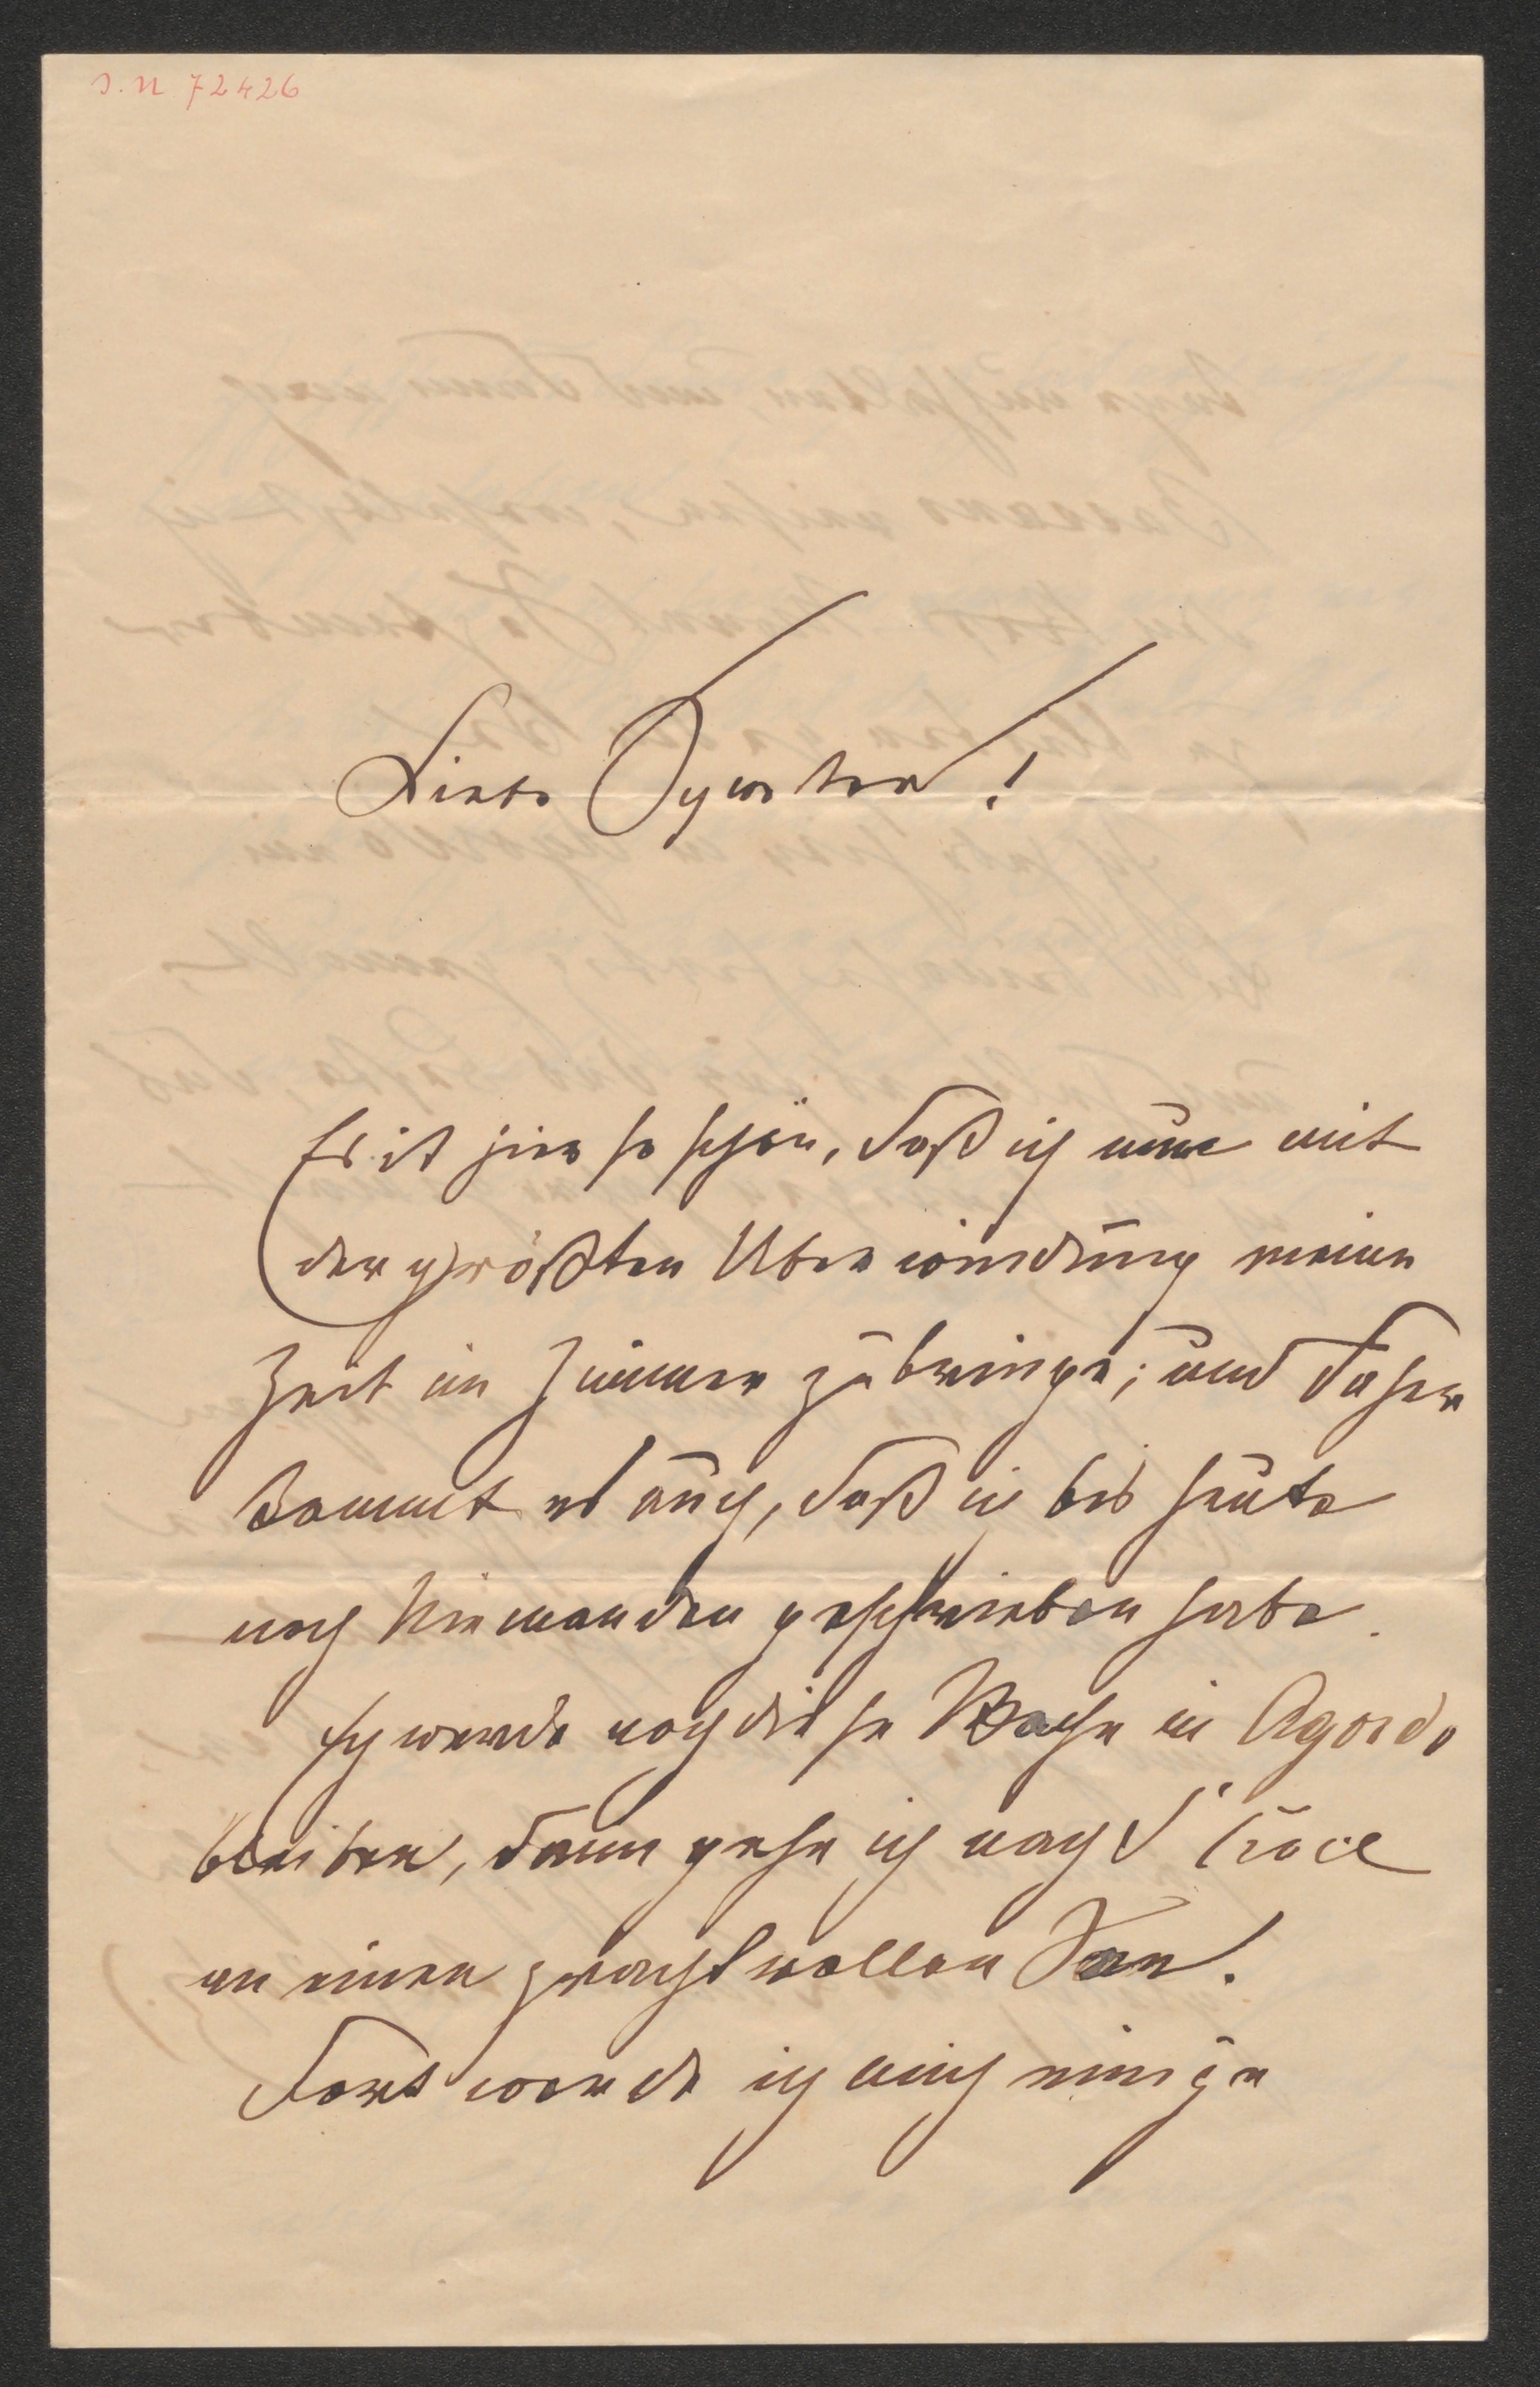 I. N 72426
Liebe Schwester!
Es ist hier so schön, daß ich nur mit
der größten Überwindung meine
Zeit im Zimmer zubringe; und daher
kommt es auch, daß ich bis heute
noch Niemanden geschrieben habe.
Ich werde noch diese Woche in Agordo
bleiben, dann gehe ich nach
an einen prachtvollen See.
Dort werde ich mich einige